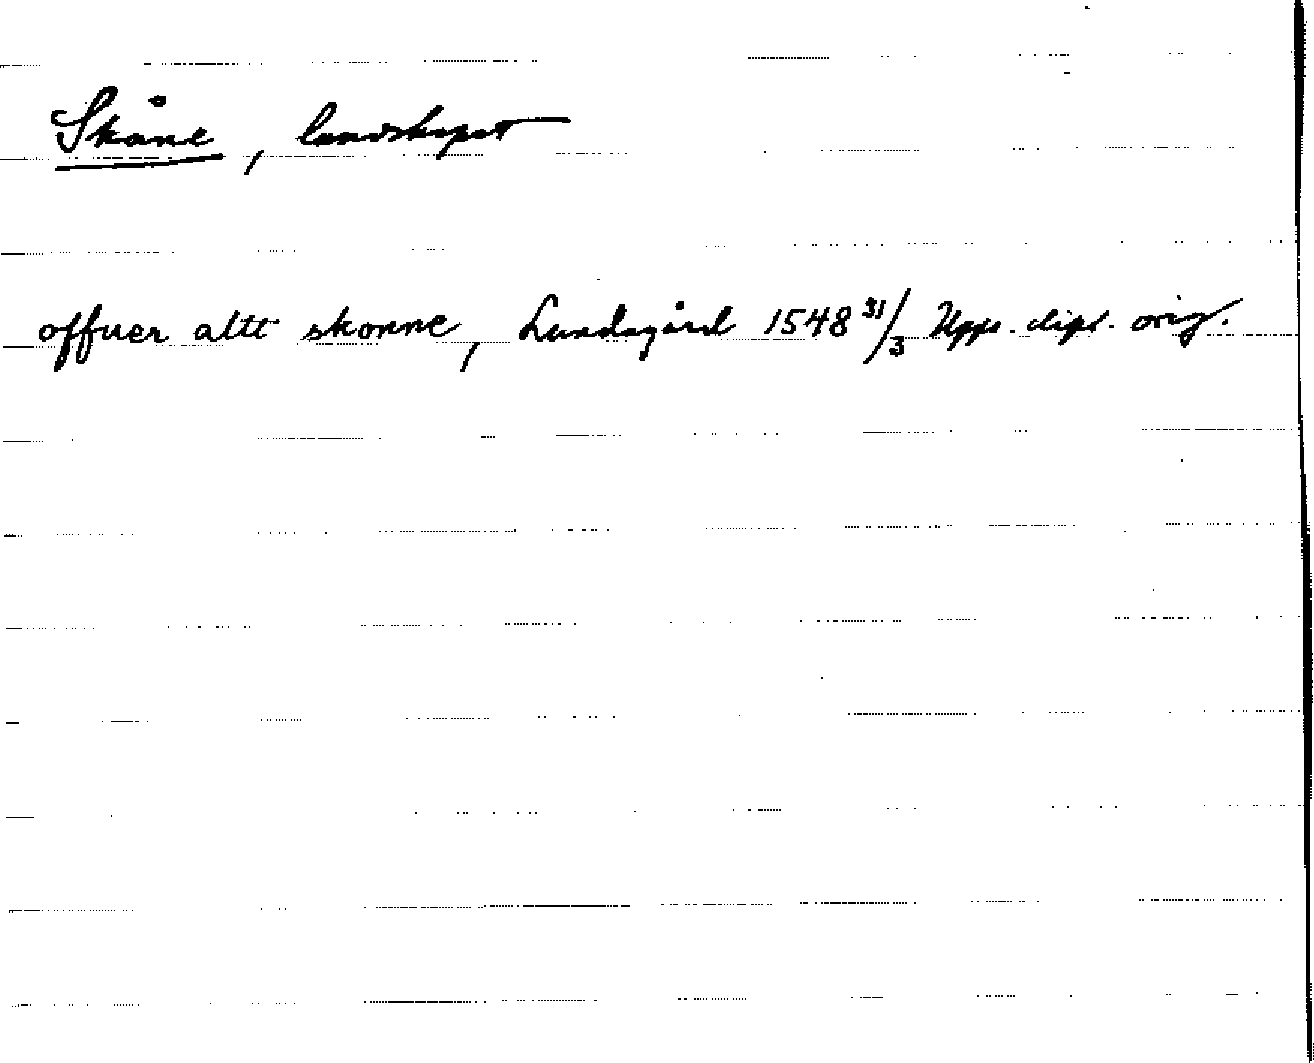 Skåne, landskapet
offuer altt skonne, Lundagård 1548 31/3 Upps. dipl. orig.